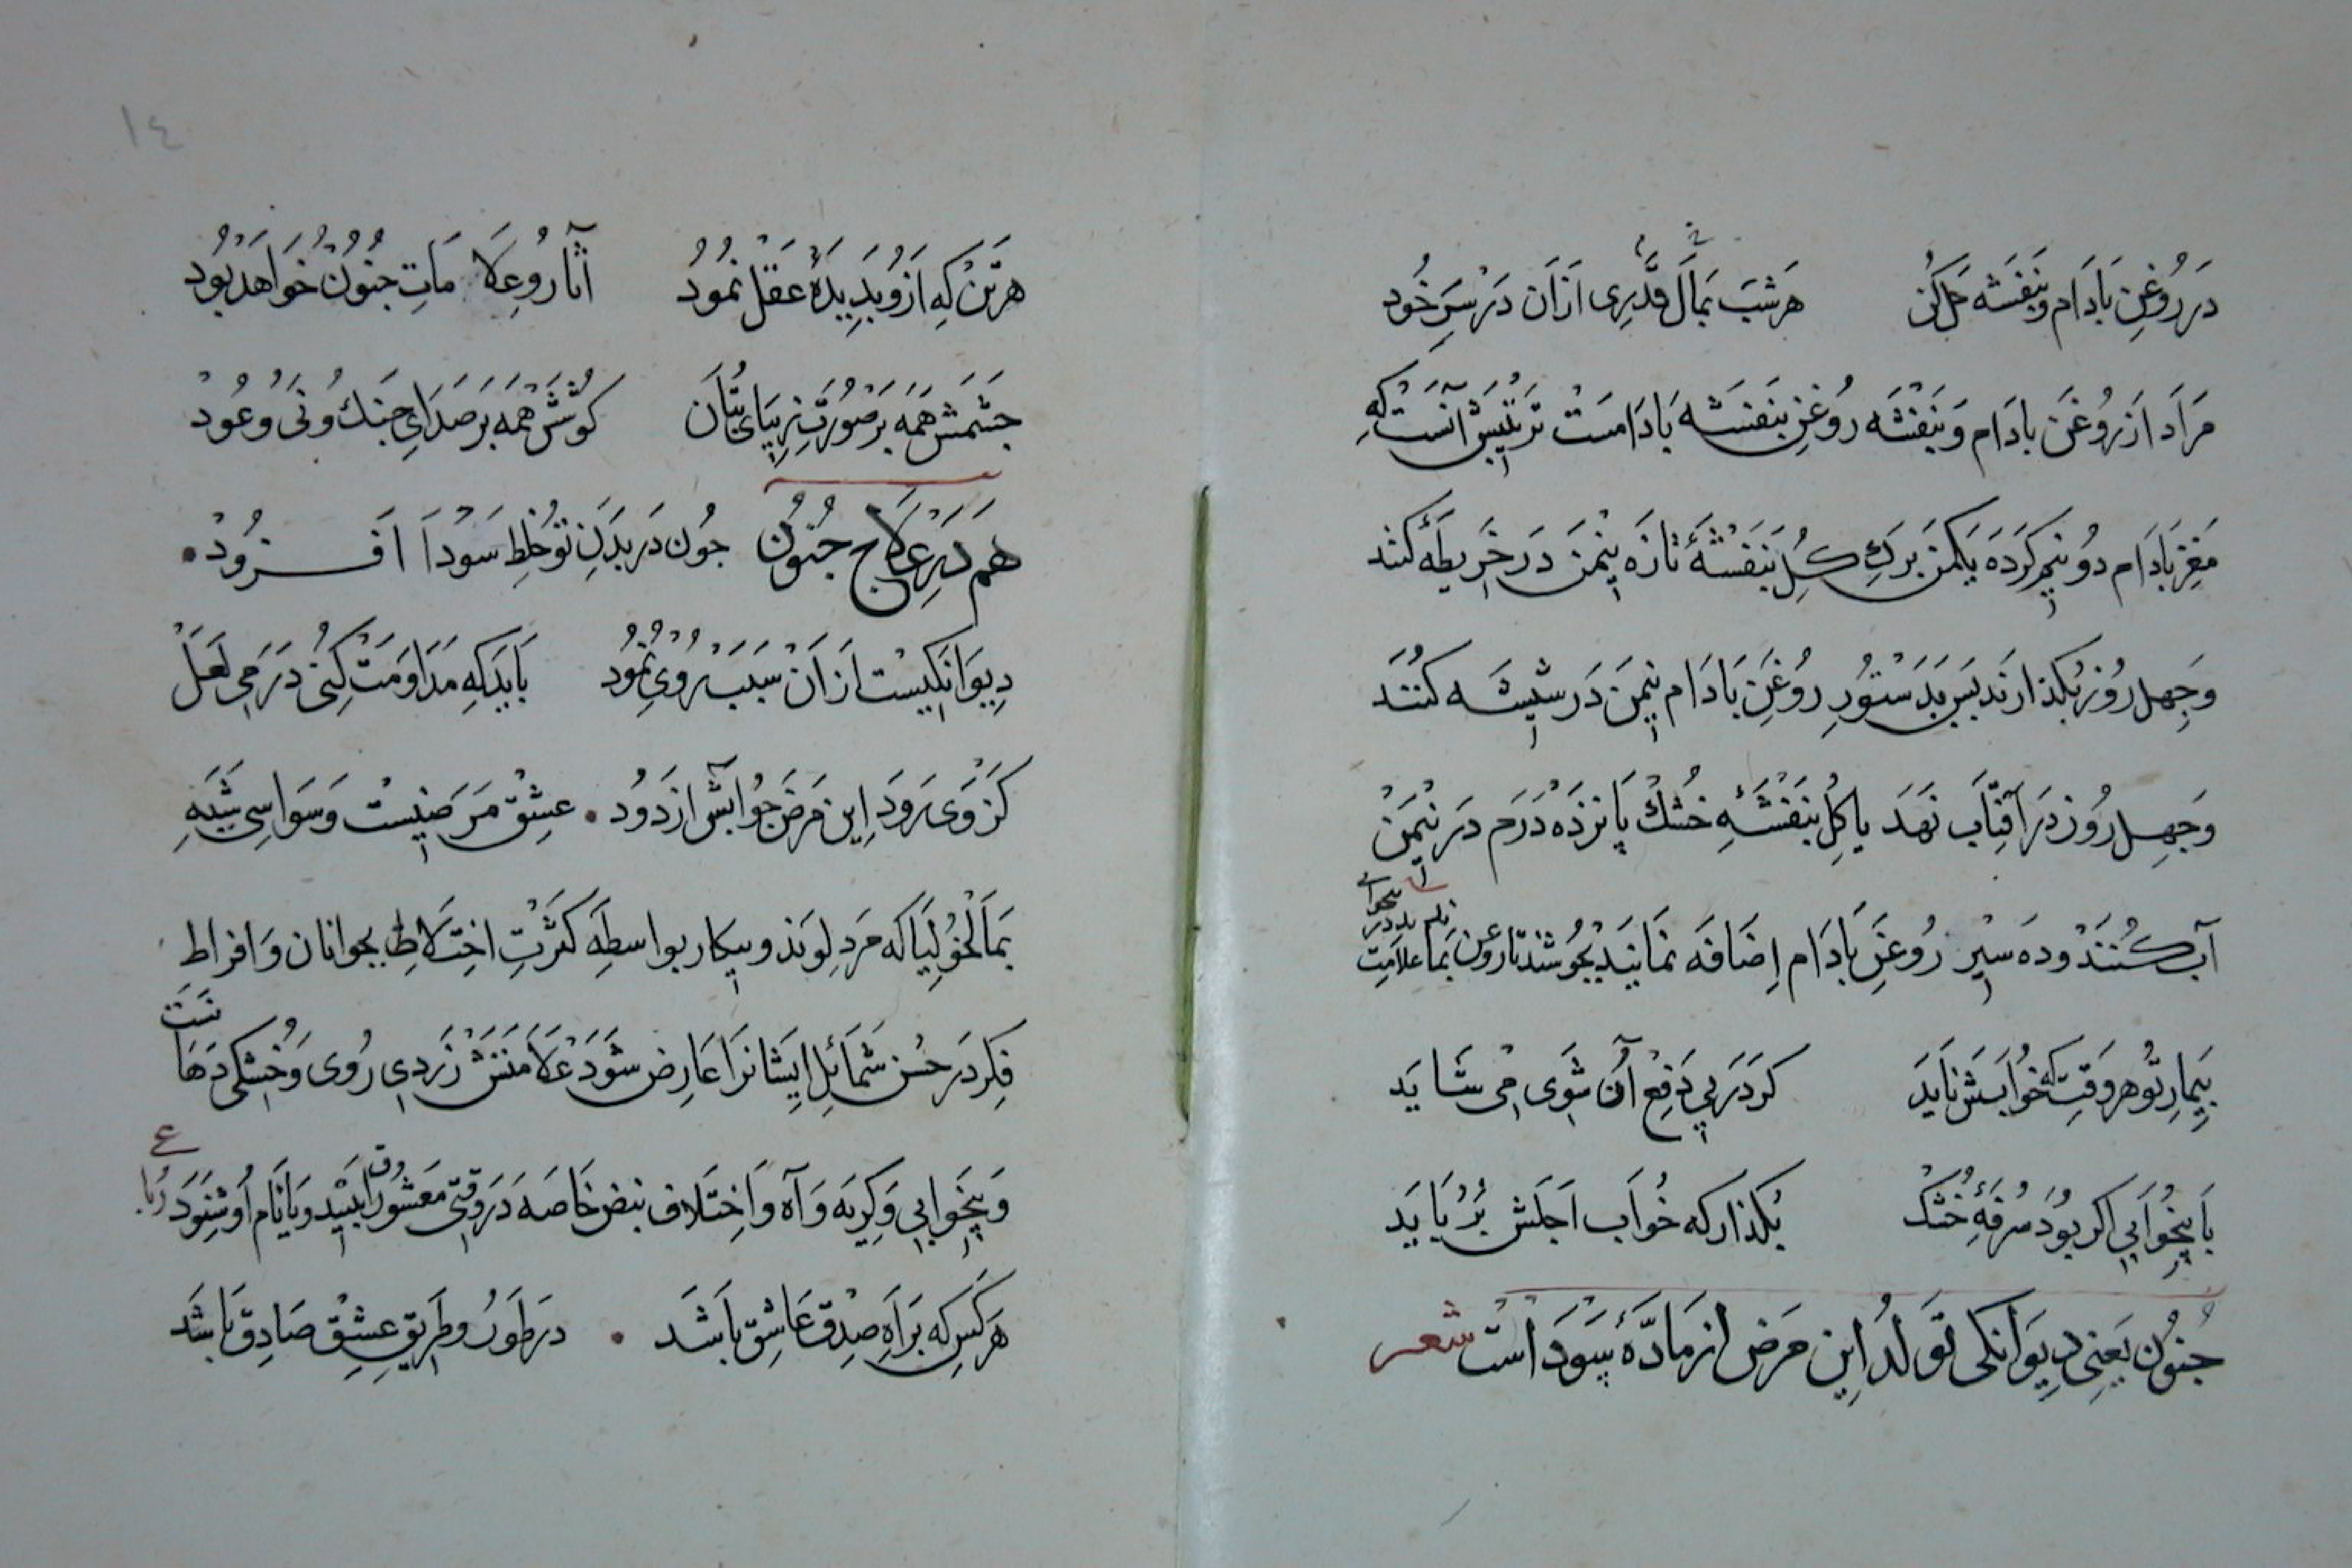 در روغن بادام و بنفشه حل کن هر شب بمال قدری ازان در سر خود
مراد از روغن بادام و بنفشه روغن بنفشه بادامست ترتیبش آنست که
مغز بادام دو نیم کرده یکمن برک کل بنفشۀ تازه نیمن در خریطه کنند
و جهل روز بکذارند پس بدستور روغن بادام نیمن در شیشه کنند
و جهل روز در آفتاب نهد یا کل بنفشۀ خشک پانزده درم در نیمن
آب کنند و ده سیر روغن بادام اضافه نمانید بجوشند تا روغن بماند علامت بیخوابی
بیمار تو هر وقت که خوابش ناید کر در پی دفع آن شوی می شاید
با بیخوابی اکر بود سرفۀ خشک بکذار که خواب اجلش برباید
جنون یعنی دیوانکی تولد این مرض از مادۀ سوداست شعر
١٤
هر تن که ازو بدید بدۀ عقل نمود آثار و علامات جنون خواهد بود
جشمش همه بر صورت زیبای بتان کوشش همه بر صدای جنک و نی و عود
هم در علاج جنون جون در بدن تو خلط سودا افزود
دیوانکیست ازان سبب روی نمود باید که مداومت کنی در می لعل
کز وی رود این مرض جو ابش از دود عشق مرضیست وسواسی شبیه
بمالخولیا که مرد لوند و بیکار بواسطه کثرت اختلاط بجوانان و افراط
فکر در حسن شمائل ایشانرا عارض شود علامتش زردی روی و خشکی دهانست
و بیخوابی و کریه و آه و اختلاف نبض خاصه در وقتی معشوق را ببیند و یا نام او شنود ربا
ع
هر کس که براه صدق عاشق باشد در طور و طریق عشق صادق باشد